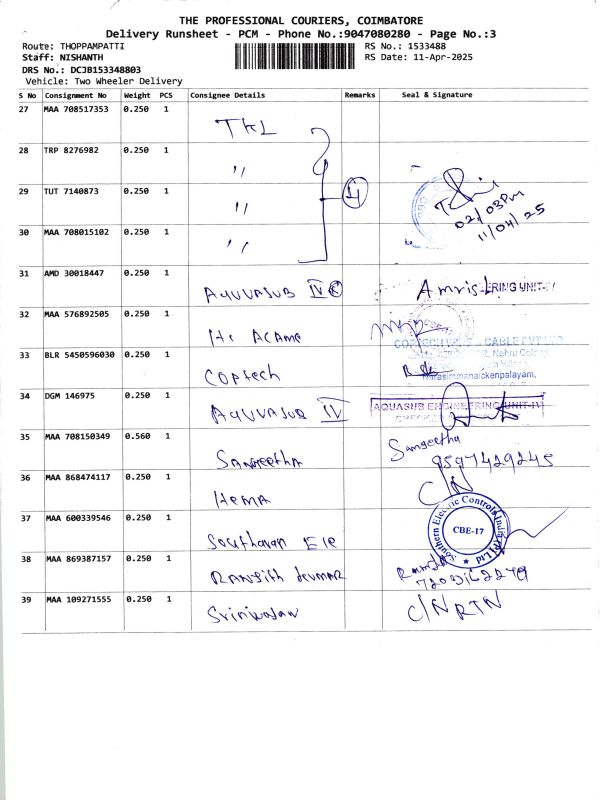 THE PROFESSIONAL COURIERS, COIMBATORE
Delivery Runsheet - PCM - Phone No.:9047080280 - Page No.:3
Route: THOPPAMPATTI RS No.: 1533488
Staff: NISHANTH RS Date: 11-Apr-2025
DRS No.: DCJB153348803
Vehicle: Two Wheeler Delivery
S No Consignment No Weight PCS Consignee Details Remarks Seal & Signature
27 MAA 708517353 0.250 1
TKL
28 TRP 8276982 0.250 1
"
29 TUT 7140873 0.250 1
" 4
02/03Pm
11/04/25
30 MAA 708015102 0.250 1
"
31 AMD 30018447 0.250 1
AQUVASUB IV ERING UNIT-IV
32 MAA 576892505 0.250 1
COPTECH CABLE PVT LTD
33 BLR 5450596030 0.250 1
2, Nehru Colony
Coptech
Narasimmanaickenpalayam,
34 DGM 146975 0.250 1
AQUVASUB IV AQUASUB ENGINEERING UNIT-IV
35 MAA 708150349 0.560 1
Sangeetha
SANGEETHA 9597429245
36 MAA 868474117 0.250 1
C/N
HEMA
37 MAA 600339546 0.250 1
Southern Electric Controls India (P) Ltd
CBE-17
Southavan Ele
38 MAA 869387157 0.250 1
RANJITH
39 MAA 109271555 0.250 1
Srinivasan C/N RTN